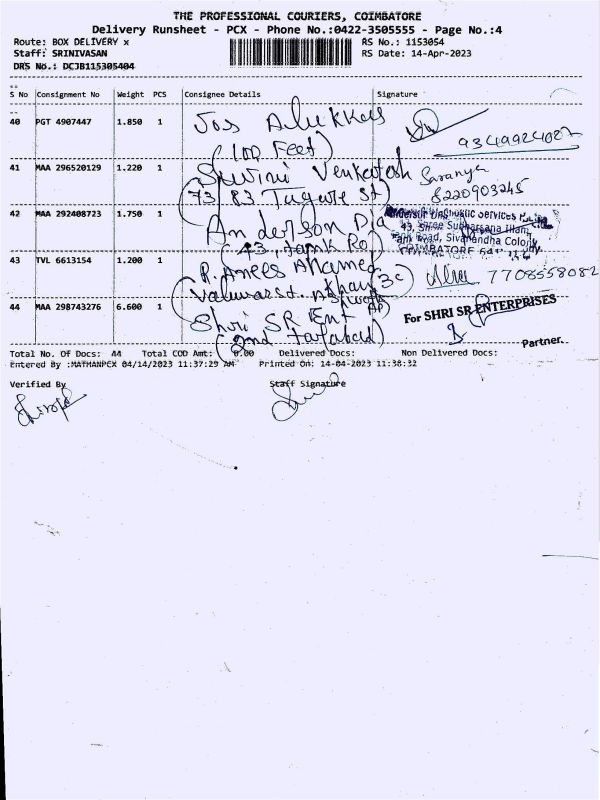 THE PROFESSIONAL COURIERS, COIMBATORE
Delivery Runsheet - PCX - Phone No.:0422-3505555 - Page No.:4
Route: BOX DELIVERY x RS No.: 1153054
Staff: SRINIVASAN RS Date: 14-Apr-2023
DRS No.: DCJB115305404
S No Consignment No Weight PCS Consignee Details Signature
40 PGT 4907447 1.850 1 Jos Alukkas
(100 Feet)
41 MAA 296520129 1.220 1 Venkatesh Saranya
(73/83 Tagore St) 8220903245
42 MAA 292408723 1.750 1 Anderson Dia
(43, tank Ro)
43, Shree Subharsana Illam,
Tank Road, Sivanandha Colony,
COIMBATORE
43 TVL 6613154 1.200 1 R. Anees Ahamed 7708558082
44 MAA 298743276 6.600 1 Shri SR Ent For SHRI SR ENTERPRISES
(2nd
Partner.
Total No. Of Docs: 44 Total COD Amt: 0.00 Delivered Docs: Non Delivered Docs:
Entered By :MATHANPEX 04/14/2023 11:37:29 AM Printed On: 14-04-2023 11:38:32
Verified By Staff Signature